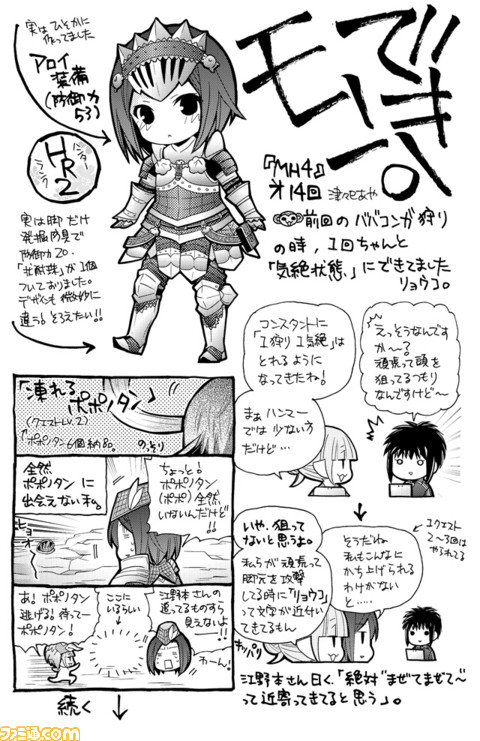 できんモー!!
『MH4』
オ14回 津々巳あや
前回のババコンガ狩り
の時,1回ちゃんと
「気絶状態、」にできてました
リョウコ。
実はひそかに
作ってました
アロイ
装備
(防御力
53)
ハンター
ランク
HR2
実は脚だけ
発掘防具で
防御力20.
ついておりました。
デザインも微妙に
違うしそろえたい!!
コンスタントに
「1狩り1気絶」は
とれるように
なってきたね!
まぁハンマー
では少ない方
だけど…
えっそうなんです
か〜?
頑張って頭を
狙ってるつもり
なんですけど〜
「凍れる
ポポノタン」
(クエストLv.2)
ポポノタン6個納品。
のっそり
全然
ポポノタンに
出会えない私。
ヒョオー
ちょっと!
ポポノタン
(ポポ)全然
いないんだけど
!!
あ!ポポノタン
逃げる!待って
ポポノタン!
ここに
いるらしい
江野本さんの
追ってるものすら
見えないよ
ー!!
わーん!
いや、狙って
ないと思うよ。
私らが頑張って
脚元を攻撃
してる時に「リョウコ」
って文字が近付い
てきてるもん
キッパリ
そうだね
私もこんなに
かち上げられる
わけがない
と……
1クエスト
2〜3回は
やられてる
江野本さん曰く、「絶対“まぜてまぜて〜”
って近寄ってきてると思う」。
続く
ファミ通.com